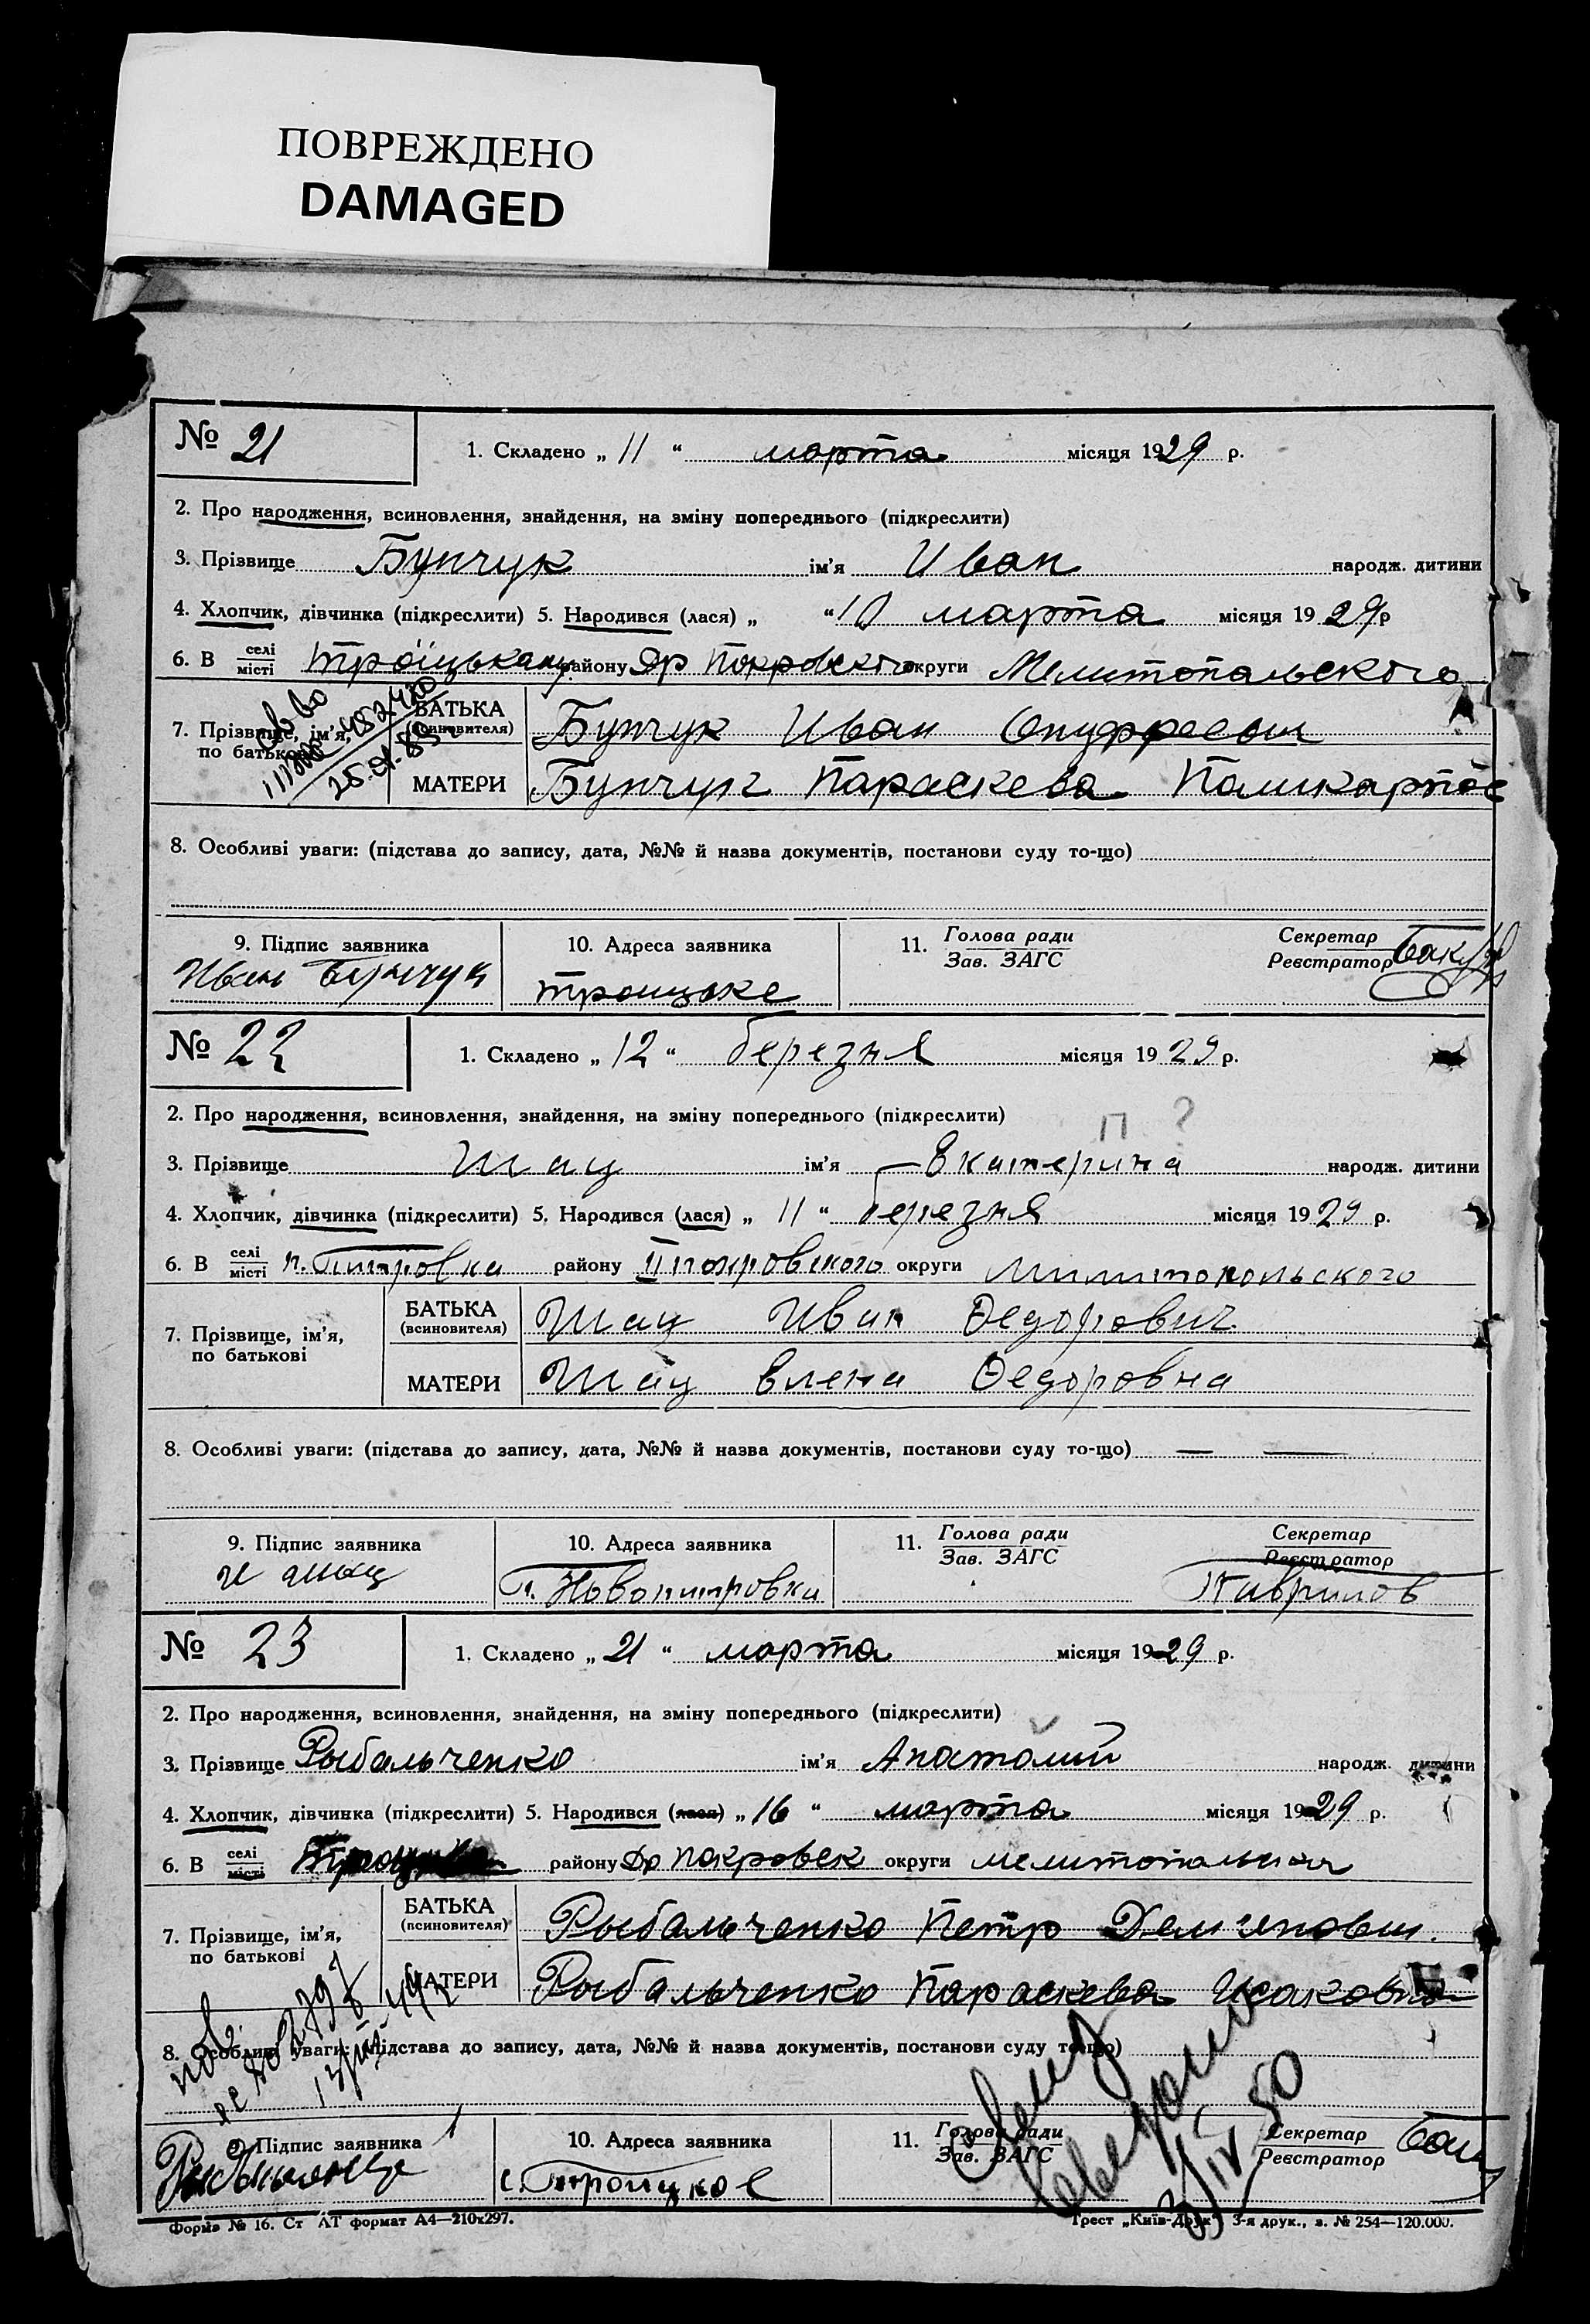 ПОВРЕЖДЕНО
DAMAGED
№ 21
1. Складено „ 11 “ марта місяця 1929 р.
2. Про народження, всиновлення, знайдення, на зміну попереднього (підкреслити)
3. Прізвище Бунчук ім’я Иван народж. дитини
4. Хлопчик, дівчинка (підкреслити) 5. Народився (лася) „ “ 10 марта місяця 1929 р
6. В селі місті Троїцькому району Др Покровского округи Мелитопальского
7. Прізвище, ім’я, по батькові
БАТЬКА (всиновителя) Бунчук Иван Онуфреевич
МАТЕРИ Бунчук Параскева Поликарпов
25.01.85
8. Особливі уваги: (підстава до запису, дата, №№ й назва документів, постанови суду то-що)
9. Підпис заявника 10. Адреса заявника 11. Голова ради Зав. ЗАГС Секретар Реєстратор
Иван Бунчук Троицьке
№ 22
1. Складено „ 12 “ березня місяця 1929 р.
2. Про народження, всиновлення, знайдення, на зміну попереднього (підкреслити)
П ?
3. Прізвище Шац ім’я Екатерина народж. дитини
4. Хлопчик, дівчинка (підкреслити) 5. Народився (лася) „ 11 “ березня місяця 1929 р.
6. В селі місті п. Питровки району II покровского округи Милитопольского
7. Прізвище, ім’я, по батькові
БАТЬКА (всиновителя) Шац Иван Федорович
МАТЕРИ Шац Елена Федоровна
8. Особливі уваги: (підстава до запису, дата, №№ й назва документів, постанови суду то-що) — —
9. Підпис заявника 10. Адреса заявника 11. Голова ради Зав. ЗАГС Секретар Реєстратор
И Шац п. Новопитровки Гаврилов
№ 23
1. Складено „ 21 “ марта місяця 1929 р.
2. Про народження, всиновлення, знайдення, на зміну попереднього (підкреслити)
3. Прізвище Рыбальченко ім’я Анатолий народж. дитини
4. Хлопчик, дівчинка (підкреслити) 5. Народився (лася) „ 16 “ марта місяця 1929 р.
6. В селі місті району Др Покровск округи мелитопальская
7. Прізвище, ім’я, по батькові
БАТЬКА (всиновителя) Рыбальченко Петр Демянович.
МАТЕРИ Рыбальченко Параскева Исаковна
8. Особливі уваги: (підстава до запису, дата, №№ й назва документів, постанови суду то-що)
9. Підпис заявника 10. Адреса заявника 11. Голова ради Зав. ЗАГС Секретар Реєстратор
с. Троицкое
3/IV 50
Форма № 16. Ст АТ формат А4—210х297. Трест „Київ-Друк“ 3-я друк., з. № 254—120.000.